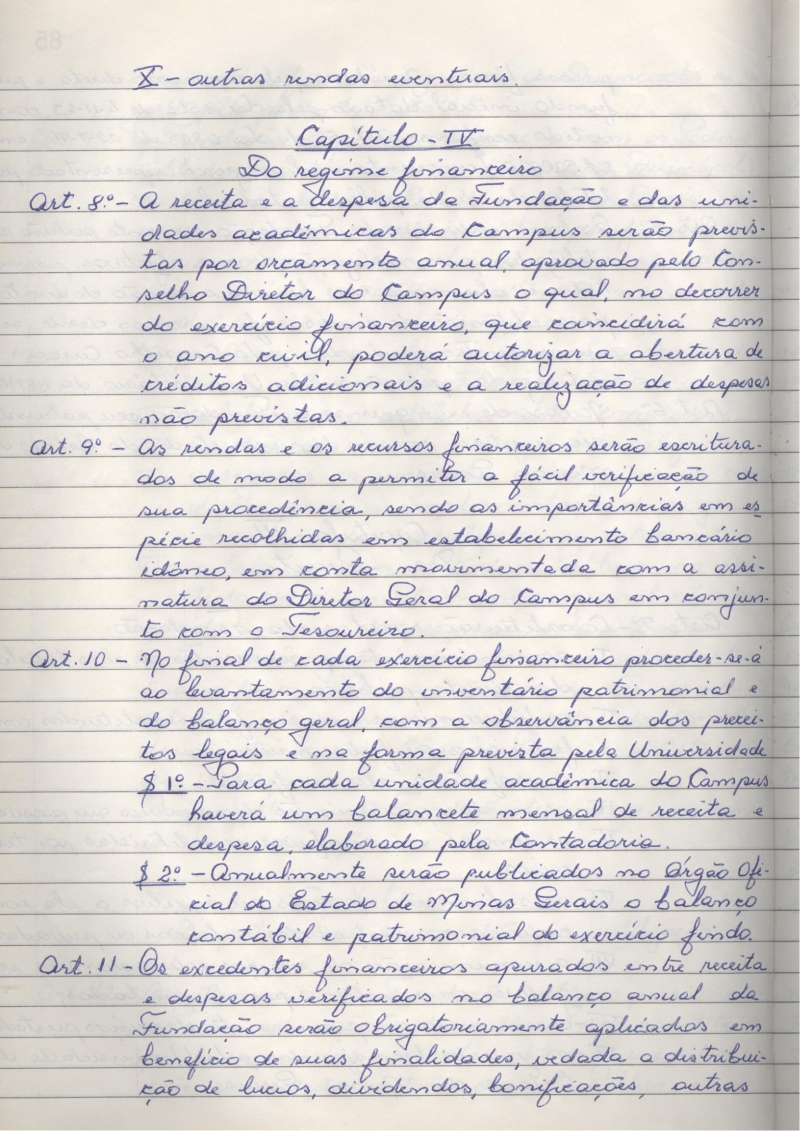 X - outras rendas eventuais.
Capítulo - IV
Do regime financeiro
Art. 8.º - A receita e a despesa da Fundação e das uni-
dades acadêmicas do Campus serão previs-
tas por orçamento anual, aprovado pelo Con-
selho Diretor do Campus o qual, no decorrer
do exercício financeiro, que coincidirá com
o ano civil, poderá autorizar a abertura de
créditos adicionais e a realização de despesas
não previstas.
Art. 9.º - As rendas e os recursos financeiros serão escritura-
dos de modo a permitir a fácil verificação de
sua procedência, sendo as importâncias em es
pécie recolhidas em estabelecimento bancário
idôneo, em conta movimentada com a assi-
natura do Diretor Geral do Campus em conjun-
to com o Tesoureiro.
Art. 10 - No final de cada exercício financeiro proceder-se-á
ao levantamento do inventário patrimonial e
do balanço geral, com a observância dos precei-
tos legais e na forma prevista pela Universidade
§ 1º - Para cada unidade acadêmica do Campus
haverá um balancete mensal de receita e
despesa, elaborado pela Contadoria.
§ 2º - Anualmente serão publicados no Órgão Ofi-
cial do Estado de Minas Gerais o balanço
contábil e patrimonial do exercício findo.
Art. 11 - Os excedentes financeiros apurados entre receita
e despesas verificados no balanço anual da
Fundação serão obrigatoriamente aplicados em
benefício de suas finalidades, vedada a distribui-
ção de lucros, dividendos, bonificações, outras